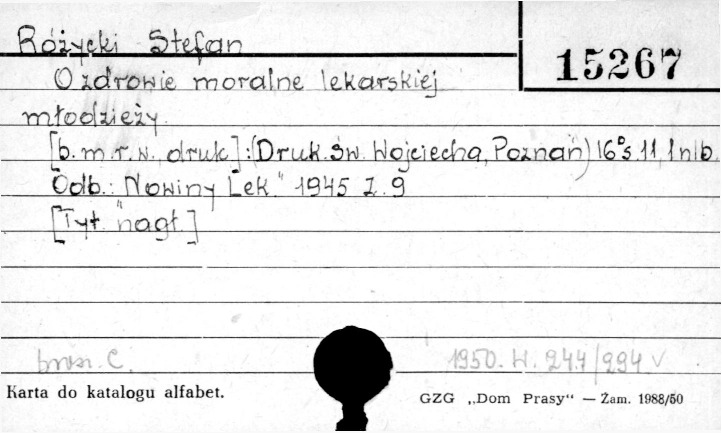 Różycki Stefan
15267
O zdrowie moralne lekarskiej
młodzieży.
[b.m.r.w. druk]:(Druk.św. Wojciecha, Poznań) 16° s. 11, 1 nlb.
Odb.: „Nowiny Lek." 1945 z. 9
[Tyt. nagł.]
brosz. C.
1950. W. 244/294 v
Karta do katalogu alfabet.
GZG „Dom Prasy“ — Żam. 1988/50